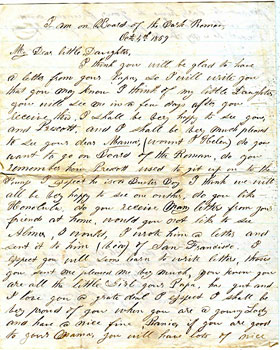 I am on Board of the Bark Roman,
Oct 4th 1859
My Dear little Daughter,
I think you will be glad to have
a letter from your Papa, so I will write you
that you may know I think of my little Daughter
you will see me in a few days after you
receive this, I shall be very happy to see you,
and Prescott, and I shall be very much pleased
to see your dear Mama, (wount I Helen) do you
want to go on Board of the Roman, do you
remember him Prescott used to get up on to the
I expect is a Buster Boy I think we will
all be very happy to see on another, do you like
Honolulu, do you receive letters from your
friends at home, would you not like to see
Alma, I would, I wrote him a letter and
sent it to him of San Francisco I
expect you will soon learn to write letters, those
you sent me pleased me very much, you know you
are all the little Girl your Papa, has got and
I love you a grate deal I expect I shall be
very proud of you when you are a young Lady
and have a nice fine Pianio if you are good
to your Mama, you will have lots of nice